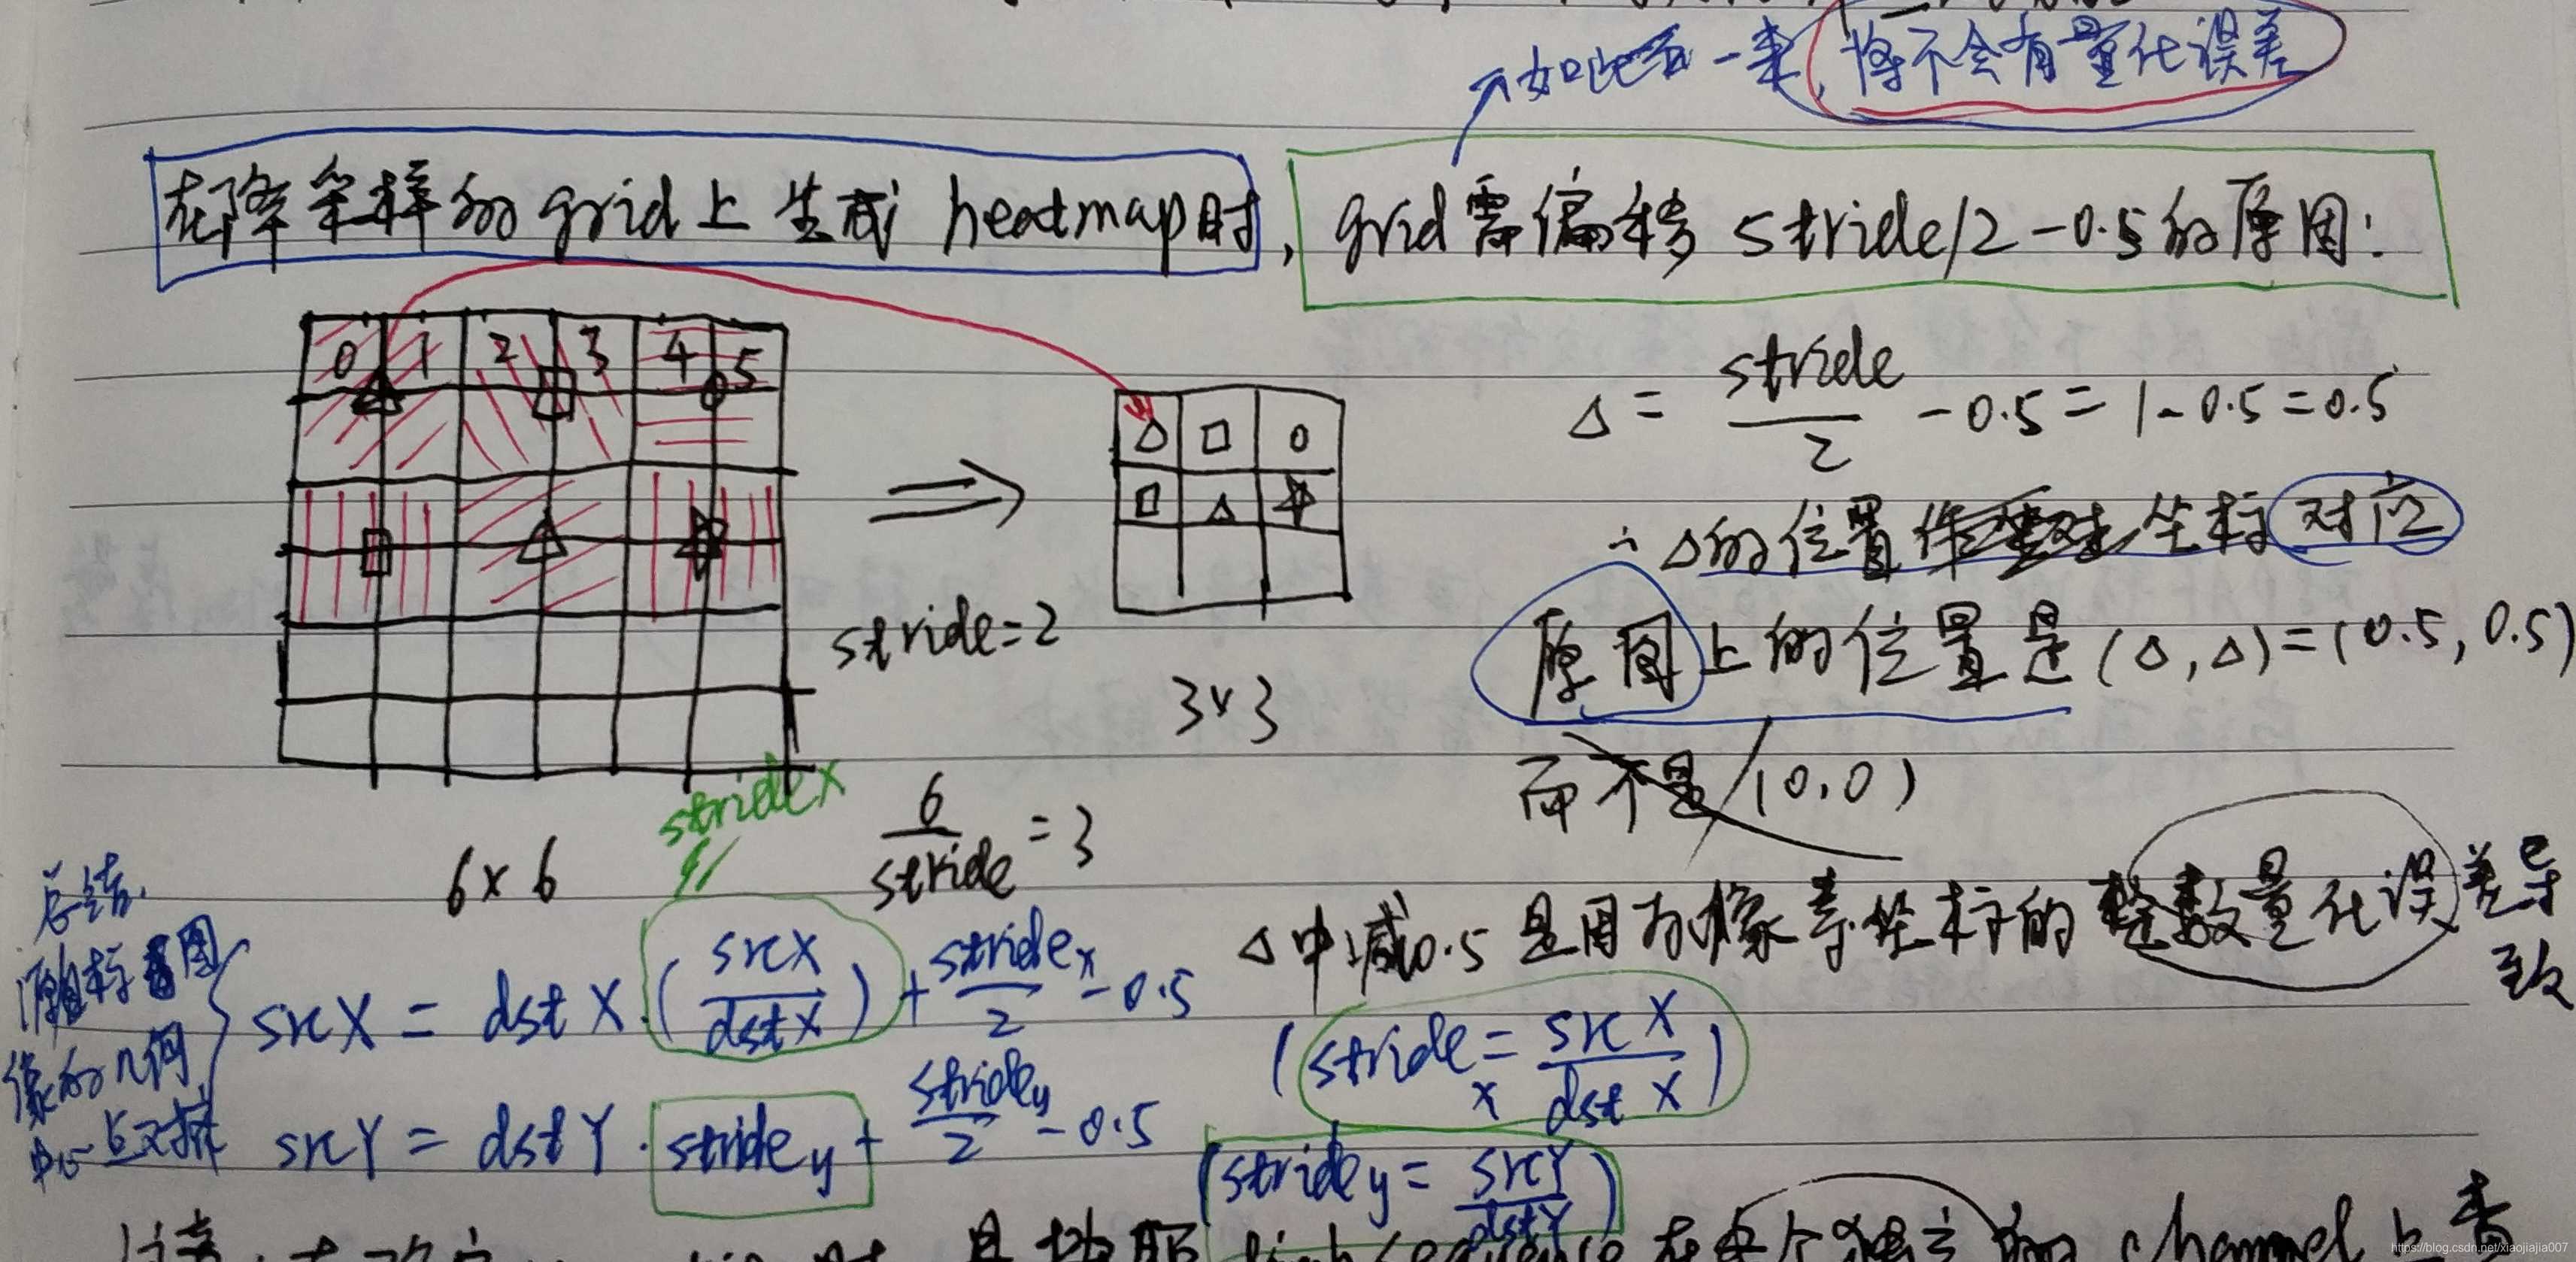 如此一来,将不会有量化误差
在降采样的grid上生成 heatmap时, grid需偏移 stride/2-0.5的原因:
0 1 2 3 4 5
Δ = stride/2 -0.5 = 1-0.5=0.5
∴ Δ的位置坐标对应
stride=2
原图上的位置是(Δ,Δ)=(0.5, 0.5)
3×3
而不是(0,0)
stride x
6×6
6/stride = 3
总结:
Δ中减0.5是因为像素坐标的整数量化误差导致
源目标图像的几何中心点对准
srcX = dstX·(srcX/dstX)+stridex/2-0.5
(stridex = srcX/dstX)
srcY = dstY·stridey+stridey/2-0.5
(stridey = srcY/dstY)
channel上
https://blog.csdn.net/xiaojiajia007